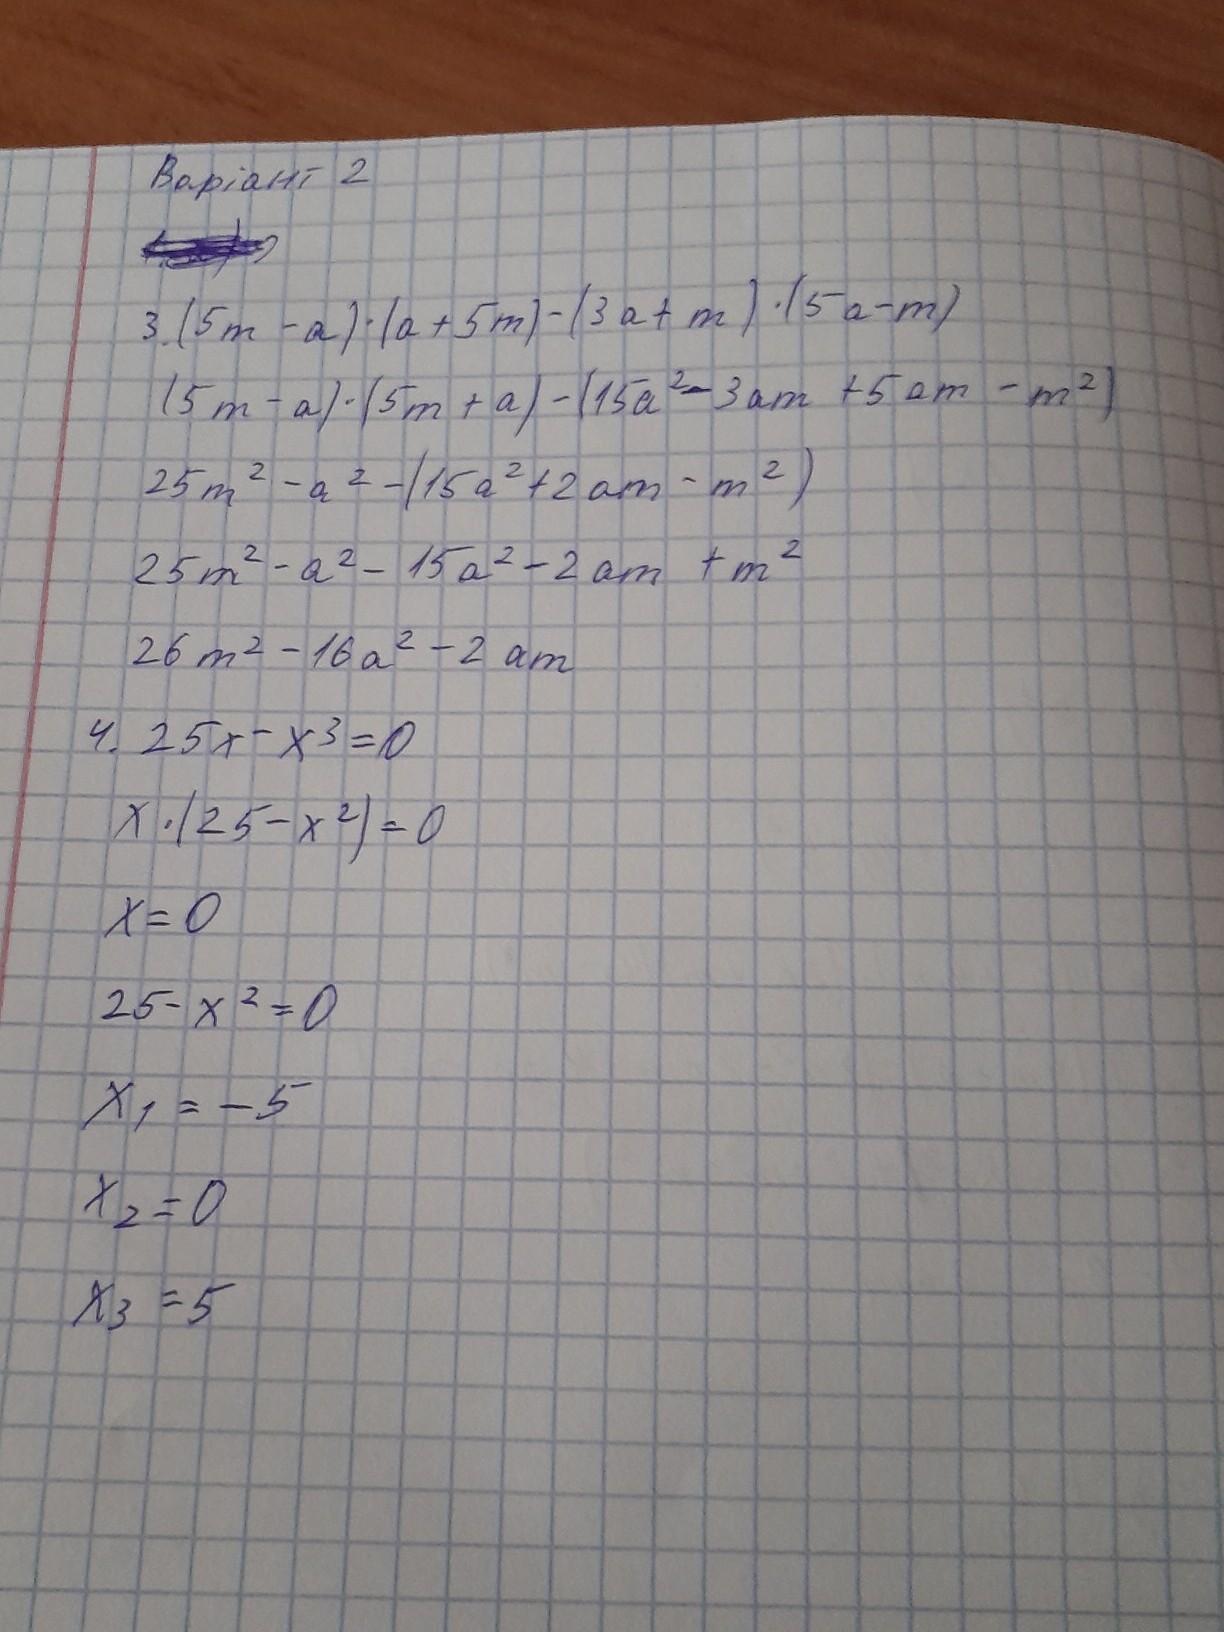 Варіант 2
3.(5m-a)·(a+5m)-(3a+m)·(5a-m)
(5m-a)·(5m+a)-(15a²-3am+5am-m²)
25m²-a²-(15a²+2am-m²)
25m²-a²-15a²-2am+m²
26m²-16a²-2am
4. 25x-x³=0
x·(25-x²)=0
x=0
25-x²=0
x₁=-5
x₂=0
x₃=5